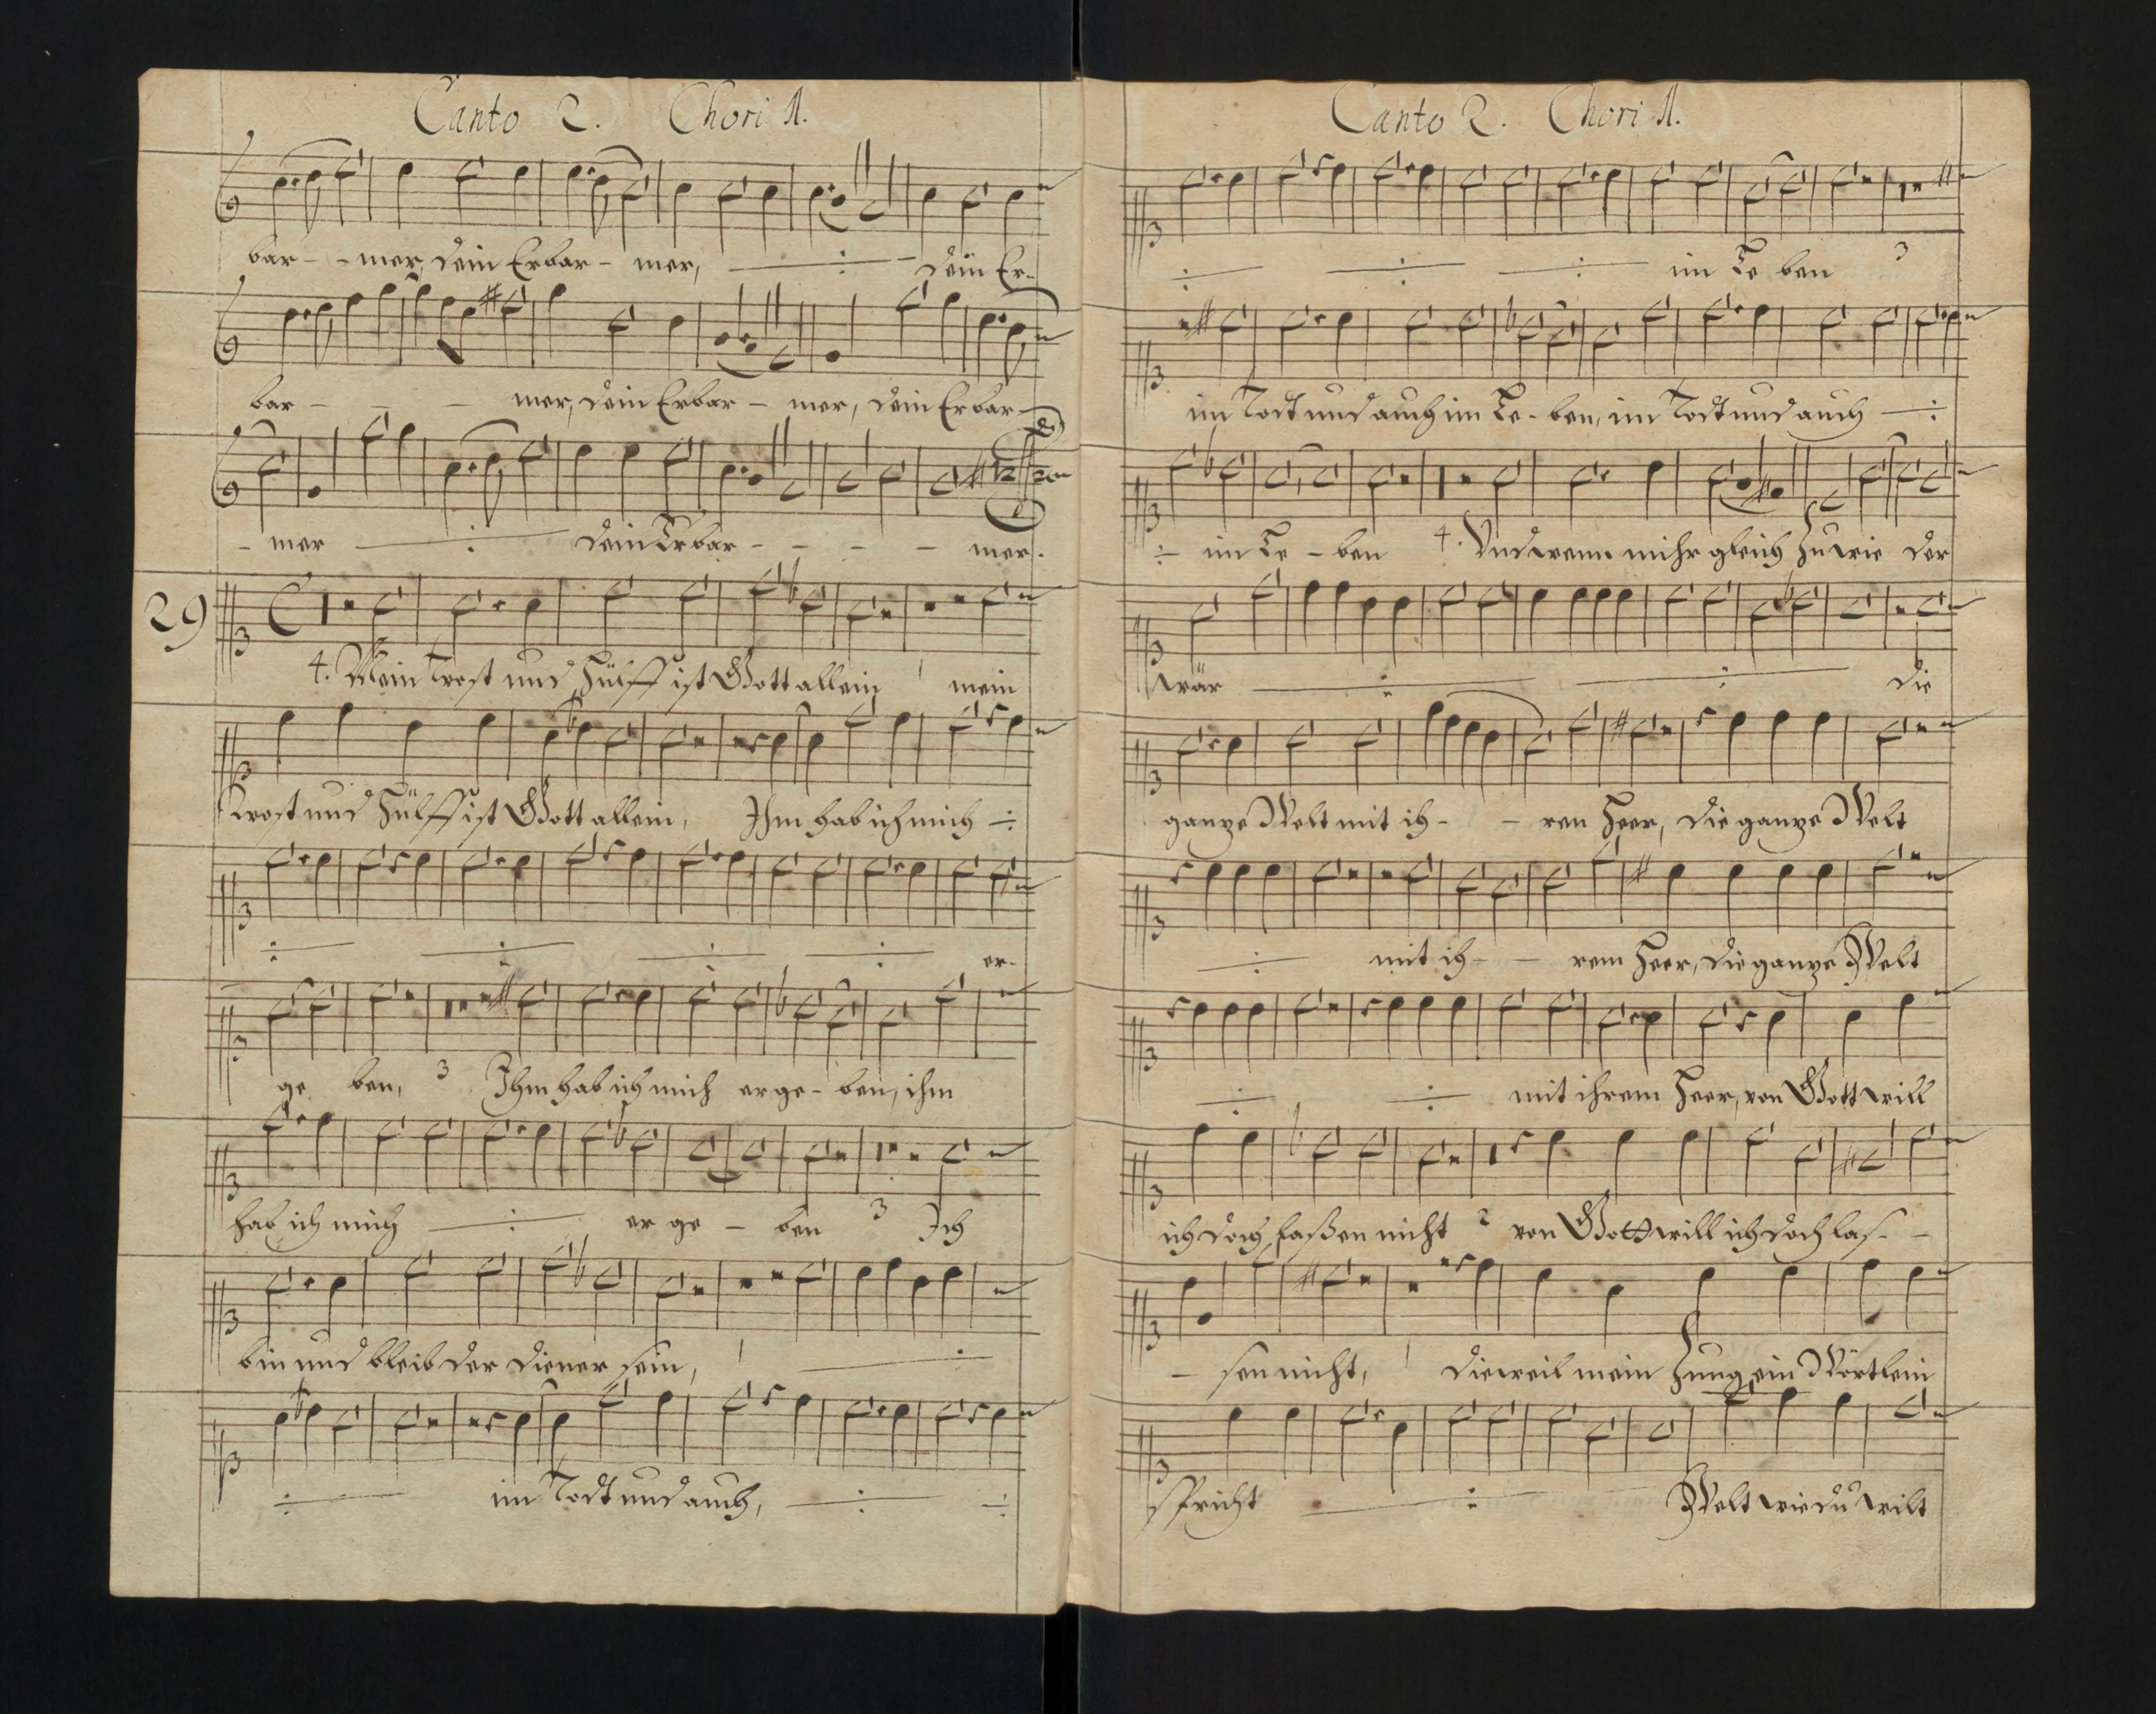 Canto 2. Chori 1.
bar - - mer, dein Erbar - mer, ÷ dein Er-
bar - - - mer, dein Erbar - mer, dein Erbar-
- mer ÷ dein Erbar - - - - mer.
29
4. Mein Trost und Hülff ist Gott allein 1 mein
Trost und Hülff ist Gott allein, Ihm hab ich mich ÷
÷ ÷ ÷ ÷ er-
ge ben, 3 Ihm hab ich mich erge - ben, ihm
hab ich mich ÷ er ge - ben 3 Ich
bin und bleib der diener sein, 1 ÷
÷ im Todt und auch, ÷ ÷
Canto 2. Chori 1.
÷ ÷ ÷ im Le ben 3
im Todt und auch im Le - ben, im Todt und auch ÷
÷ im Le - ben 4. Und wenn mihr gleich zu wie der
wär ÷ ÷ die
ganze Welt mit ih - - ren Heer, die ganze Welt
÷ mit ih - - rem Heer, die ganze Welt
÷ ÷ mit ihrem Heer, von Gott will
ich doch laßen nicht 2 von Gott will ich doch las - -
- sen nicht, 1 dieweil mein Zung ein Wörtlein
spricht ÷ Welt wie du wilt